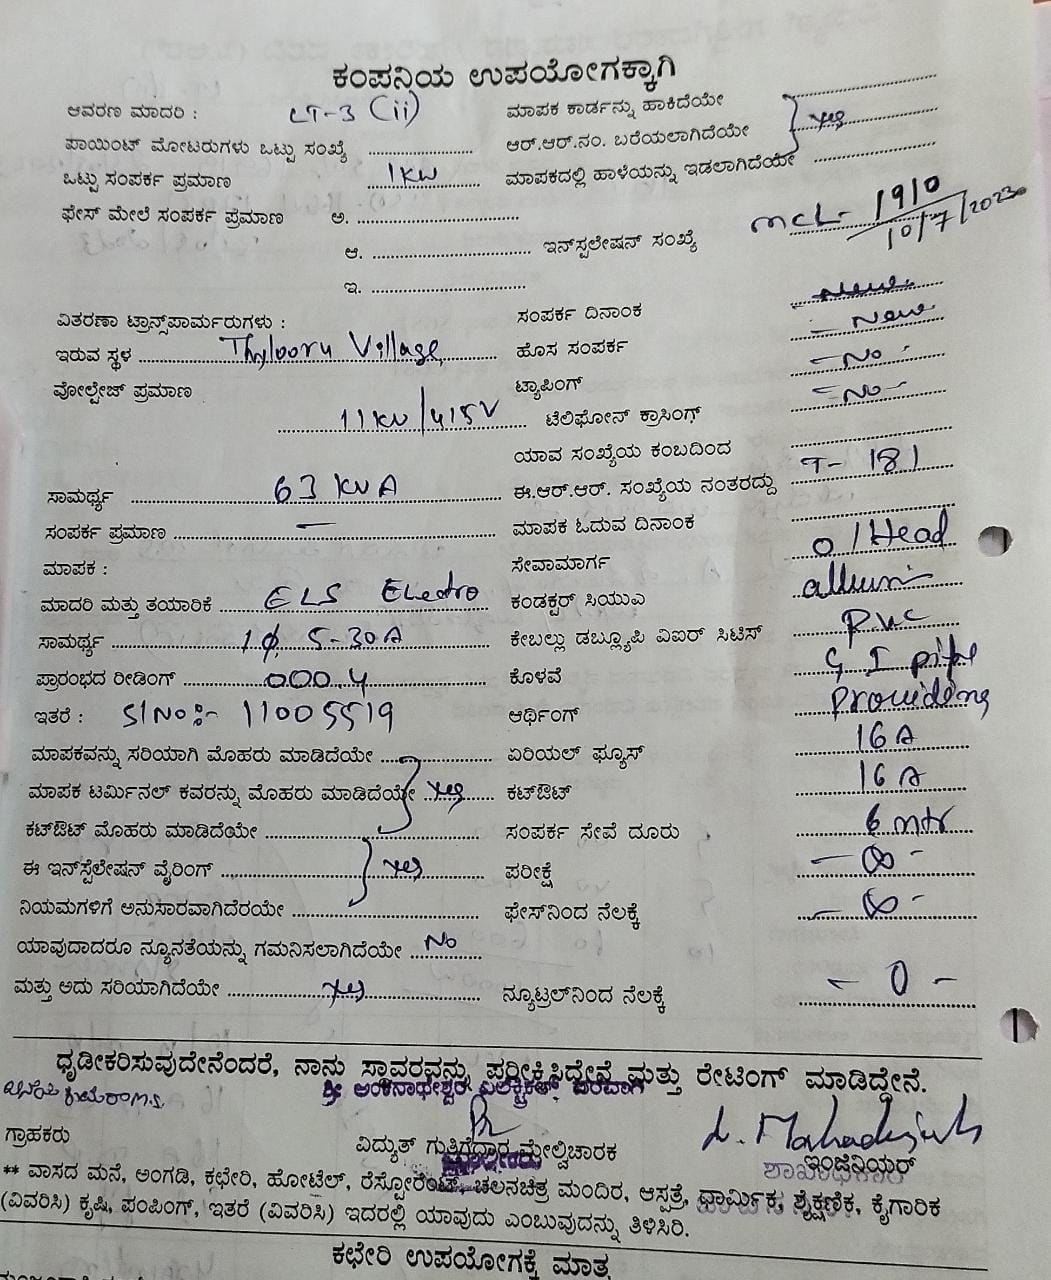 ಕಂಪನಿಯ ಉಪಯೋಗಕ್ಕಾಗಿ
ಆವರಣ ಮಾದರಿ : LT-3 (ii) ಮಾಪಕ ಕಾರ್ಡನ್ನು ಹಾಕಿದೆಯೇ
ಪಾಯಿಂಟ್ ಮೋಟರುಗಳು ಒಟ್ಟು ಸಂಖ್ಯೆ ಆರ್.ಆರ್.ನಂ. ಬರೆಯಲಾಗಿದೆಯೇ yes
ಒಟ್ಟು ಸಂಪರ್ಕ ಪ್ರಮಾಣ 1KW ಮಾಪಕದಲ್ಲಿ ಹಾಳೆಯನ್ನು ಇಡಲಾಗಿದೆಯೇ
ಫೇಸ್ ಮೇಲೆ ಸಂಪರ್ಕ ಪ್ರಮಾಣ ಅ.
ಆ. ಇನ್‌ಸ್ಪಲೇಷನ್ ಸಂಖ್ಯೆ MCL- 1910 10/7/2023
ಇ.
ವಿತರಣಾ ಟ್ರಾನ್ಸ್‌ಪಾರ್ಮರುಗಳು : ಸಂಪರ್ಕ ದಿನಾಂಕ
ಇರುವ ಸ್ಥಳ Thylooru Village ಹೊಸ ಸಂಪರ್ಕ - New
ವೋಲ್ಟೇಜ್ ಪ್ರಮಾಣ ಟ್ಯಾಪಿಂಗ್ - No -
11KV/415V ಟೆಲಿಫೋನ್ ಕ್ರಾಸಿಂಗ್ - No -
ಯಾವ ಸಂಖ್ಯೆಯ ಕಂಬದಿಂದ
ಸಾಮರ್ಥ್ಯ 63 KVA ಈ.ಆರ್.ಆರ್. ಸಂಖ್ಯೆಯ ನಂತರದ್ದು T- 181
ಸಂಪರ್ಕ ಪ್ರಮಾಣ - ಮಾಪಕ ಓದುವ ದಿನಾಂಕ
ಮಾಪಕ : ಸೇವಾಮಾರ್ಗ O/Head
ಮಾದರಿ ಮತ್ತು ತಯಾರಿಕೆ ELS Electro ಕಂಡಕ್ಟರ್ ಸಿಯುಎ
ಸಾಮರ್ಥ್ಯ 1Φ 5-30A ಕೇಬಲ್ಲು ಡಬ್ಲ್ಯೂಪಿ ವಿಐರ್ ಸಿಟಿಸ್ PVC
ಪ್ರಾರಂಭದ ರೀಡಿಂಗ್ 000.4 ಕೊಳವೆ G I pipe
ಇತರೆ : Sl No:- 11005519 ಆರ್ಥಿಂಗ್ Providing
ಮಾಪಕವನ್ನು ಸರಿಯಾಗಿ ಮೊಹರು ಮಾಡಿದೆಯೇ ಏರಿಯಲ್ ಫ್ಯೂಸ್ 16A
ಮಾಪಕ ಟರ್ಮಿನಲ್ ಕವರನ್ನು ಮೊಹರು ಮಾಡಿದೆಯೇ yes ಕಟ್‌ಔಟ್ 16A
ಕಟ್‌ಔಟ್ ಮೊಹರು ಮಾಡಿದೆಯೇ ಸಂಪರ್ಕ ಸೇವೆ ದೂರು 6 mtr
ಈ ಇನ್‌ಸ್ಪೆಲೇಷನ್ ವೈರಿಂಗ್ yes ಪರೀಕ್ಷೆ - ∞ -
ನಿಯಮಗಳಿಗೆ ಅನುಸಾರವಾಗಿದೆರಯೇ ಫೇಸ್‌ನಿಂದ ನೆಲಕ್ಕೆ - ∞ -
ಯಾವುದಾದರೂ ನ್ಯೂನತೆಯನ್ನು ಗಮನಿಸಲಾಗಿದೆಯೇ No
ಮತ್ತು ಅದು ಸರಿಯಾಗಿದೆಯೇ yes ನ್ಯೂಟ್ರಲ್‌ನಿಂದ ನೆಲಕ್ಕೆ - 0 -
ಧೃಡೀಕರಿಸುವುದೇನೆಂದರೆ, ನಾನು ಸ್ಥಾವರವನ್ನು ಪರೀಕ್ಷಿಸಿದ್ದೇನೆ ಮತ್ತು ರೇಟಿಂಗ್ ಮಾಡಿದ್ದೇನೆ.
ಶ್ರೀ ಅಂಕನಾಥೇಶ್ವರ ಎಲೆಕ್ಟ್ರಿಕಲ್ಸ್ ಪರವಾಗಿ
ಗ್ರಾಹಕರು ವಿದ್ಯುತ್ ಗುತ್ತಿಗೆದಾರ ಮೇಲ್ವಿಚಾರಕ ಇಂಜಿನಿಯರ್
** ವಾಸದ ಮನೆ, ಅಂಗಡಿ, ಕಛೇರಿ, ಹೋಟೆಲ್, ರೆಸ್ಟೋರೆಂಟ್, ಚಲನಚಿತ್ರ ಮಂದಿರ, ಆಸ್ಪತ್ರೆ, ಧಾರ್ಮಿಕ, ಶೈಕ್ಷಣಿಕ, ಕೈಗಾರಿಕ
(ವಿವರಿಸಿ) ಕೃಷಿ, ಪಂಪಿಂಗ್, ಇತರೆ (ವಿವರಿಸಿ) ಇದರಲ್ಲಿ ಯಾವುದು ಎಂಬುವುದನ್ನು ತಿಳಿಸಿರಿ.
ಕಛೇರಿ ಉಪಯೋಗಕ್ಕೆ ಮಾತ್ರ